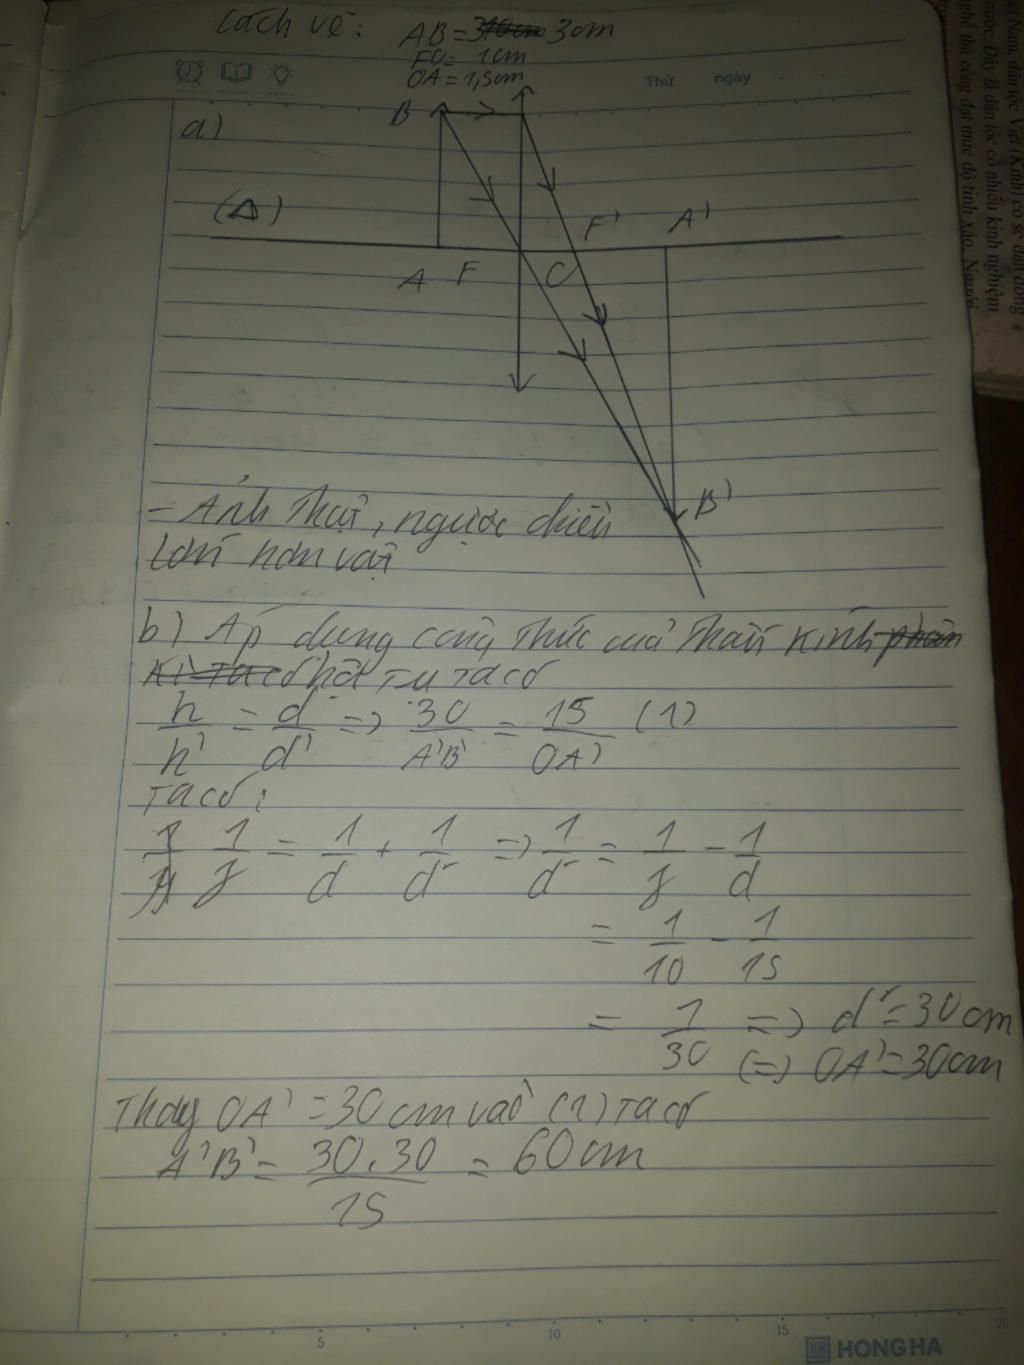 Cách vẽ: AB = 3cm
FO = 1cm
OA = 1,5cm
Thứ ngày
a)
B
(Δ)
F' A'
A F O
B'
- Ảnh thật, ngược chiều
lớn hơn vật
b) Áp dụng công thức của thấu kính
hội tụ ta có
h/h' = d/d' => 30/A'B' = 15/OA' (1)
Ta có:
1/f = 1/d + 1/d' => 1/d' = 1/f - 1/d
= 1/10 - 1/15
= 1/30 => d' = 30cm
(=) OA' = 30cm
Thay OA' = 30cm vào (1) ta có
A'B' = 30.30/15 = 60cm
5 10 15 20
HONG HA